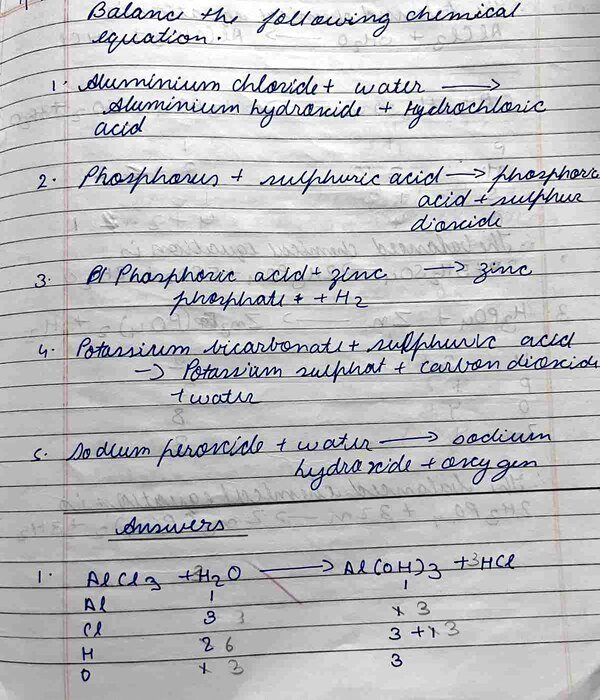 Balance the following chemical
equation.
1. Aluminium chloride + water →
Aluminium hydroxide + Hydrochloric
acid
2. Phosphorus + sulphuric acid → phosphoric
acid + sulphur
dioxide
3. Phosphoric acid + zinc → zinc
phosphate + H2
4. Potassium bicarbonate + sulphuric acid
→ Potassium sulphat + carbon dioxide
+ water
5. Sodium peroxide + water → sodium
hydroxide + oxygen
Answers
1. AlCl3 + 3H2O → Al(OH)3 + 3HCl
Al 1 1
Cl 3 3 1 3
H 2 6 3 + 1 3
O 1 3 3